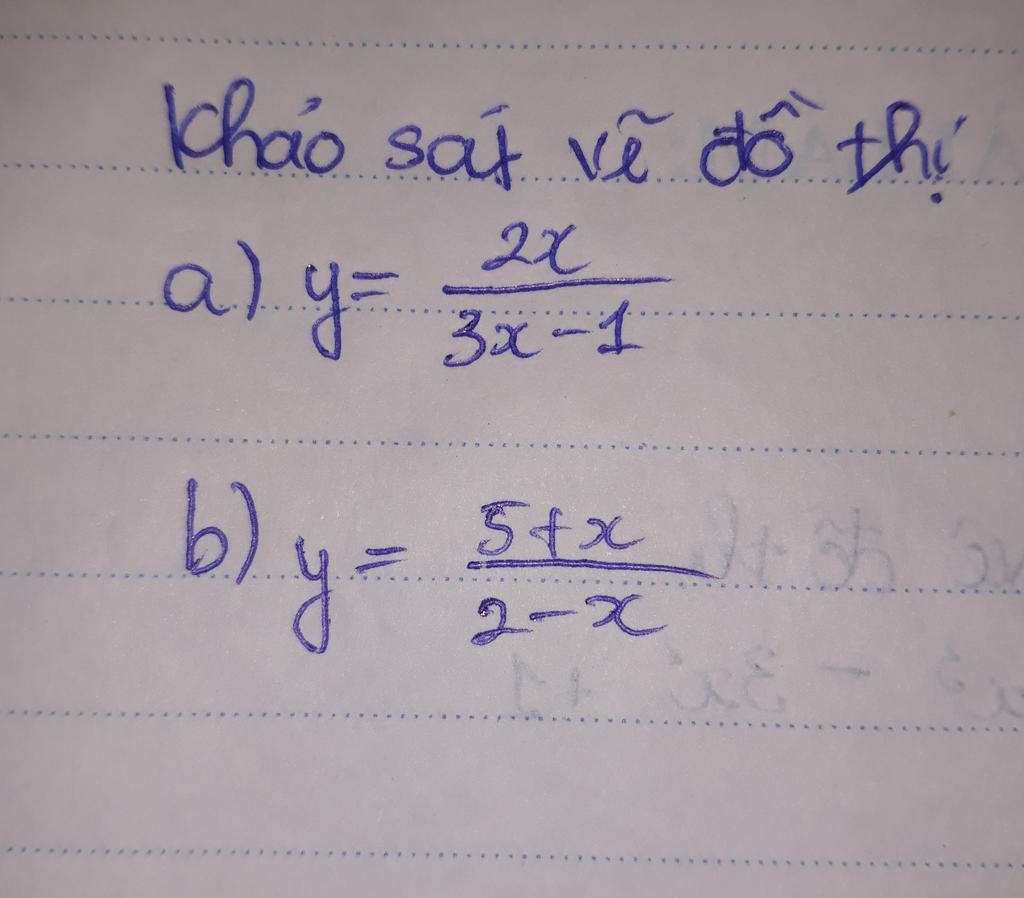 Khảo sát vẽ đồ thị
a) y = 2x / 3x - 1
b) y = 5 + x / 2 - x